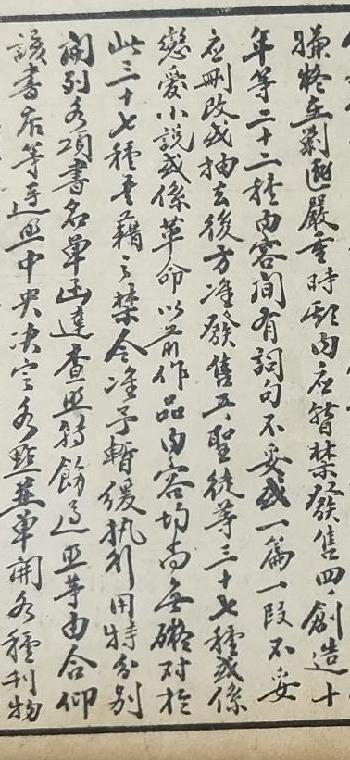 嫌剿匪嚴重時期內应暫禁發售四、創造十
年等二十二種內容間有詞句不妥或一篇一段不妥
应刪改或抽去後方准發售五、聖徒等三十七種或係
戀愛小說或係革命以前作品內容均尚無礙对於
此三十七種書藉之禁令准予暫緩执行用特分別
開列各項書名單函達查照轉飭遵照等由合仰
該書店等遵照中央決定各點並單開各種刊物